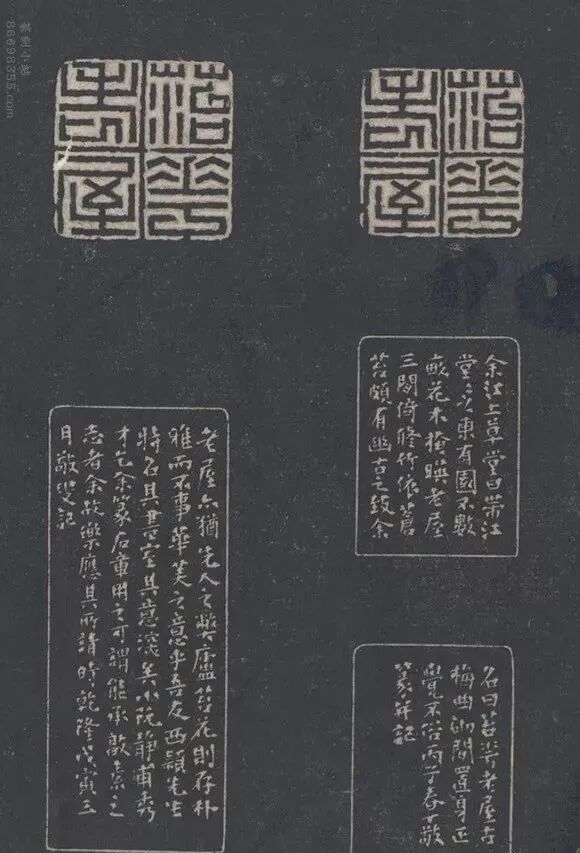 苔花
老屋
苔花
老屋
余江上草堂曰帶江
堂々之東有園不數
畝花木掩映老屋
三間倚修竹依蒼
苔頗有幽古之致余
名曰苔花老屋古
梅曲砌間置身正
覺不俗丙子春丁敬
篆并記
老屋亦猶先人之弊廬苔花則存朴
雅而不事華美之意乎吾友西穎先生
將名其書室其意深矣小阮靜甫秀
才乞余篆石章用之可謂能承敦素之
志者余故樂應其所請時乾隆戊寅三
月敬叟記
篆刻小站
86698355.com